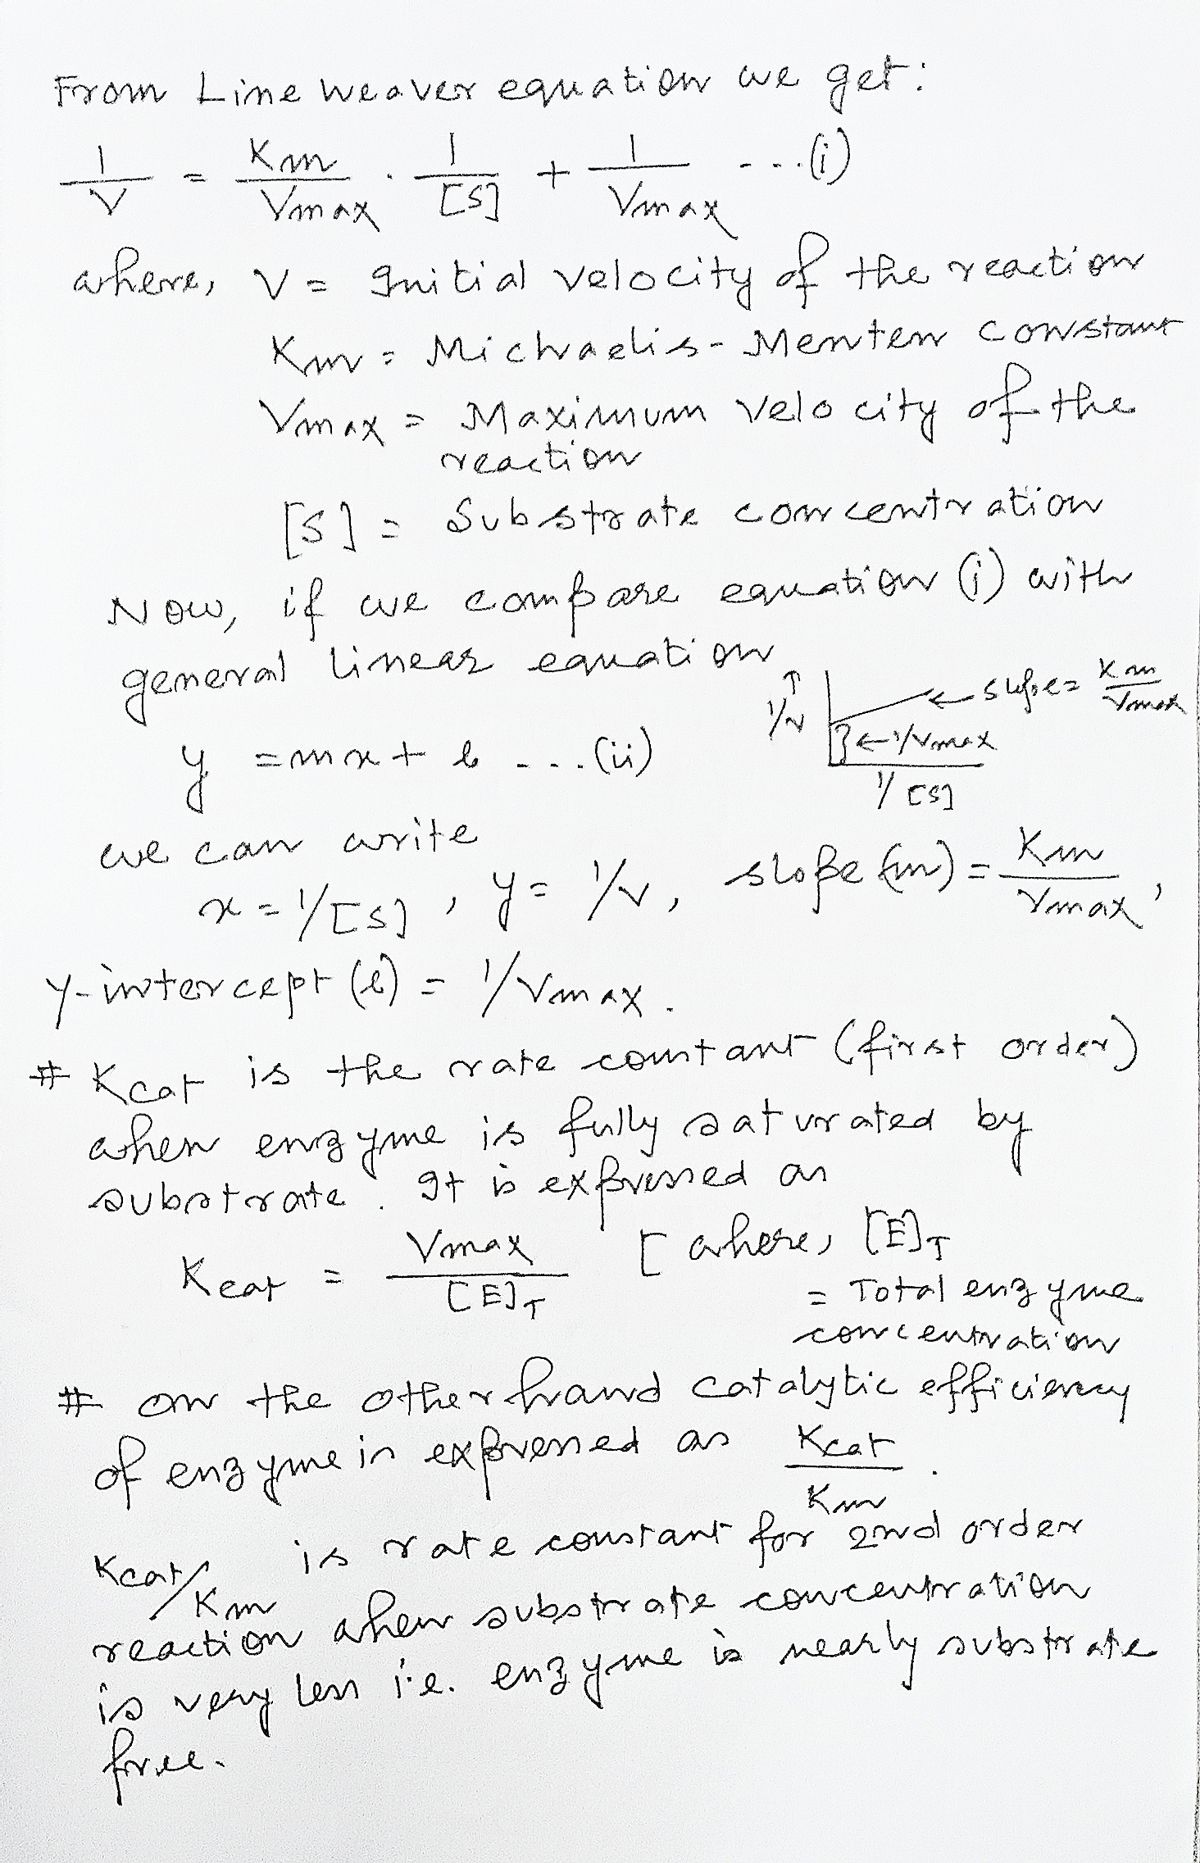 From Line weaver equation we get:
1/V = Km/Vmax . 1/[S] + 1/Vmax ---(i)
where, V = Initial velocity of the reaction
Km = Michaelis-Menten constant
Vmax = Maximum velocity of the
reaction
[S] = Substrate concentration
Now, if we compare equation (i) with
general linear equation
1/v ↑ ← slope = Km/Vmax
← 1/Vmax
1/[S]
y = mx + b ---(ii)
we can write
x = 1/[S], y = 1/v, slope (m) = Km/Vmax,
y-intercept (b) = 1/Vmax.
# Kcat is the rate constant (first order)
when enzyme is fully saturated by
substrate. It is expressed as
Kcat = Vmax/[E]T [where, [E]T
= Total enzyme
concentration
# on the other hand catalytic efficiency
of enzyme is expressed as Kcat/Km.
Kcat/Km is rate constant for 2nd order
reaction when substrate concentration
is very less i.e. enzyme is nearly substrate
free.